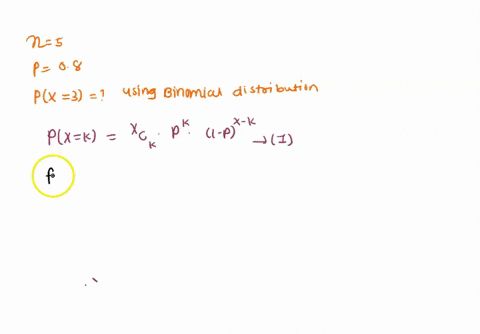 n=5
P= 0.8
P(X =3) = ? using Binomial distribution
P(X=K) = ˣC_K . P^K. (1-P)^{x-K} → (I)
f